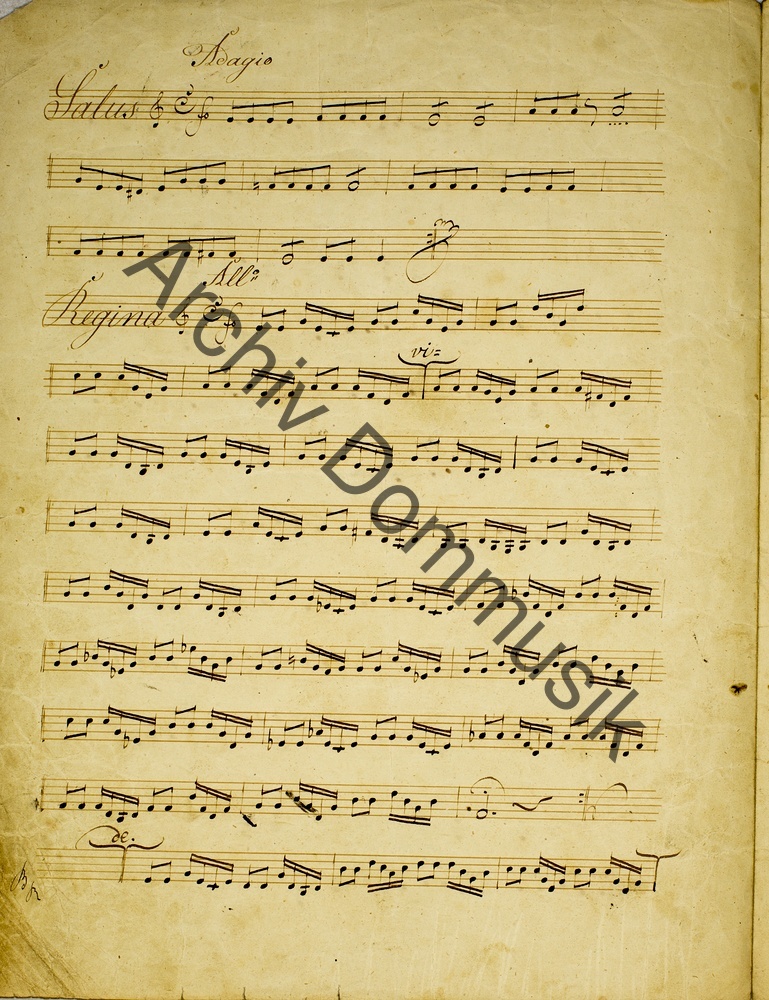 Adagio
Salus
f
All°
Regina
f
vi=
de.
Archiv Dommusik